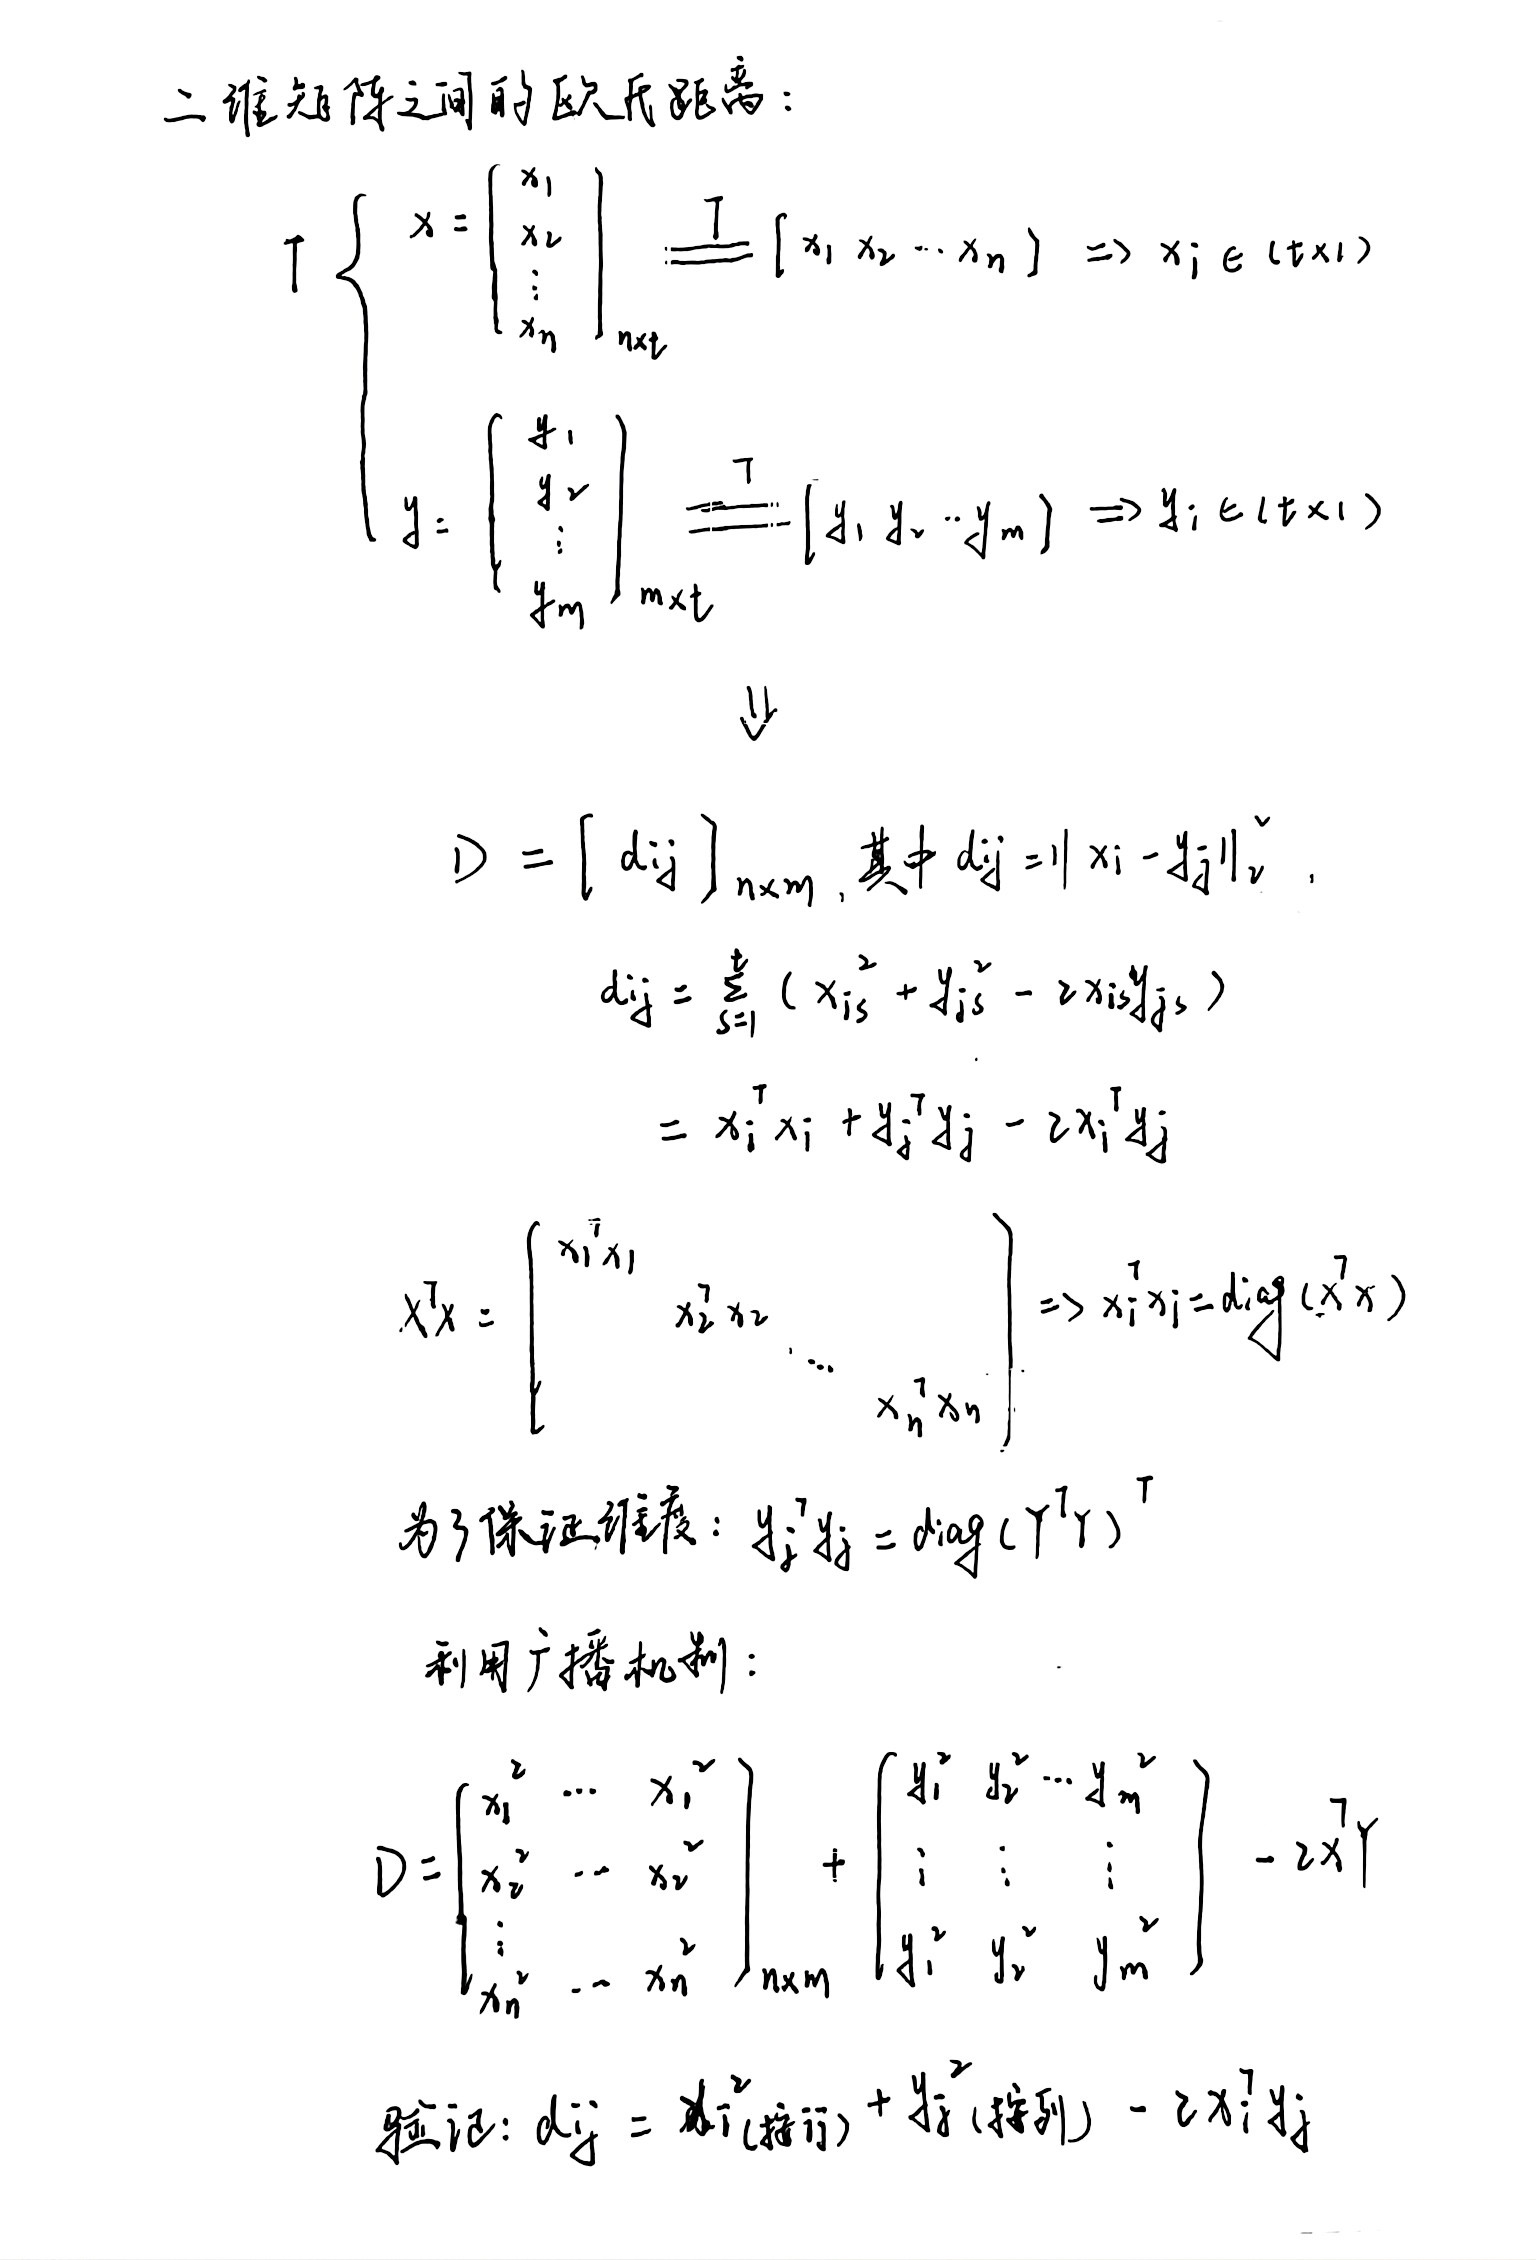 二维矩阵之间的欧氏距离:
T { x = [ x₁ x₂ ⋮ xₙ ]ₙₓₜ ═T═ [ x₁ x₂ ⋯ xₙ ] => xᵢ ∈ (t×1)
y = [ y₁ y₂ ⋮ yₘ ]ₘₓₜ ═T═ [ y₁ y₂ ⋯ yₘ ] => yᵢ ∈ (t×1)
⇓
D = [ dij ]ₙₓₘ, 其中 dij = || xi - yj ||₂².
dij = Σ_{s=1}^{t} ( x_{is}² + y_{js}² - 2x_{is}y_{js} )
= xᵢᵀxᵢ + yⱼᵀyⱼ - 2xᵢᵀyⱼ
XᵀX = [ x₁ᵀx₁ x₂ᵀx₂ ⋯ xₙᵀxₙ ] => xᵢᵀxᵢ = diag(XᵀX)
为了保证维度: yⱼᵀyⱼ = diag(YᵀY)ᵀ
利用广播机制:
D = [ x₁² ⋯ x₁² x₂² ⋯ x₂² ⋮ xₙ² ⋯ xₙ² ]ₙₓₘ + [ y₁² y₂² ⋯ yₘ² ⋮ ⋮ ⋮ y₁² y₂² yₘ² ] - 2XᵀY
验证: dij = xᵢ²(按行) + yⱼ²(按列) - 2xᵢᵀyⱼ